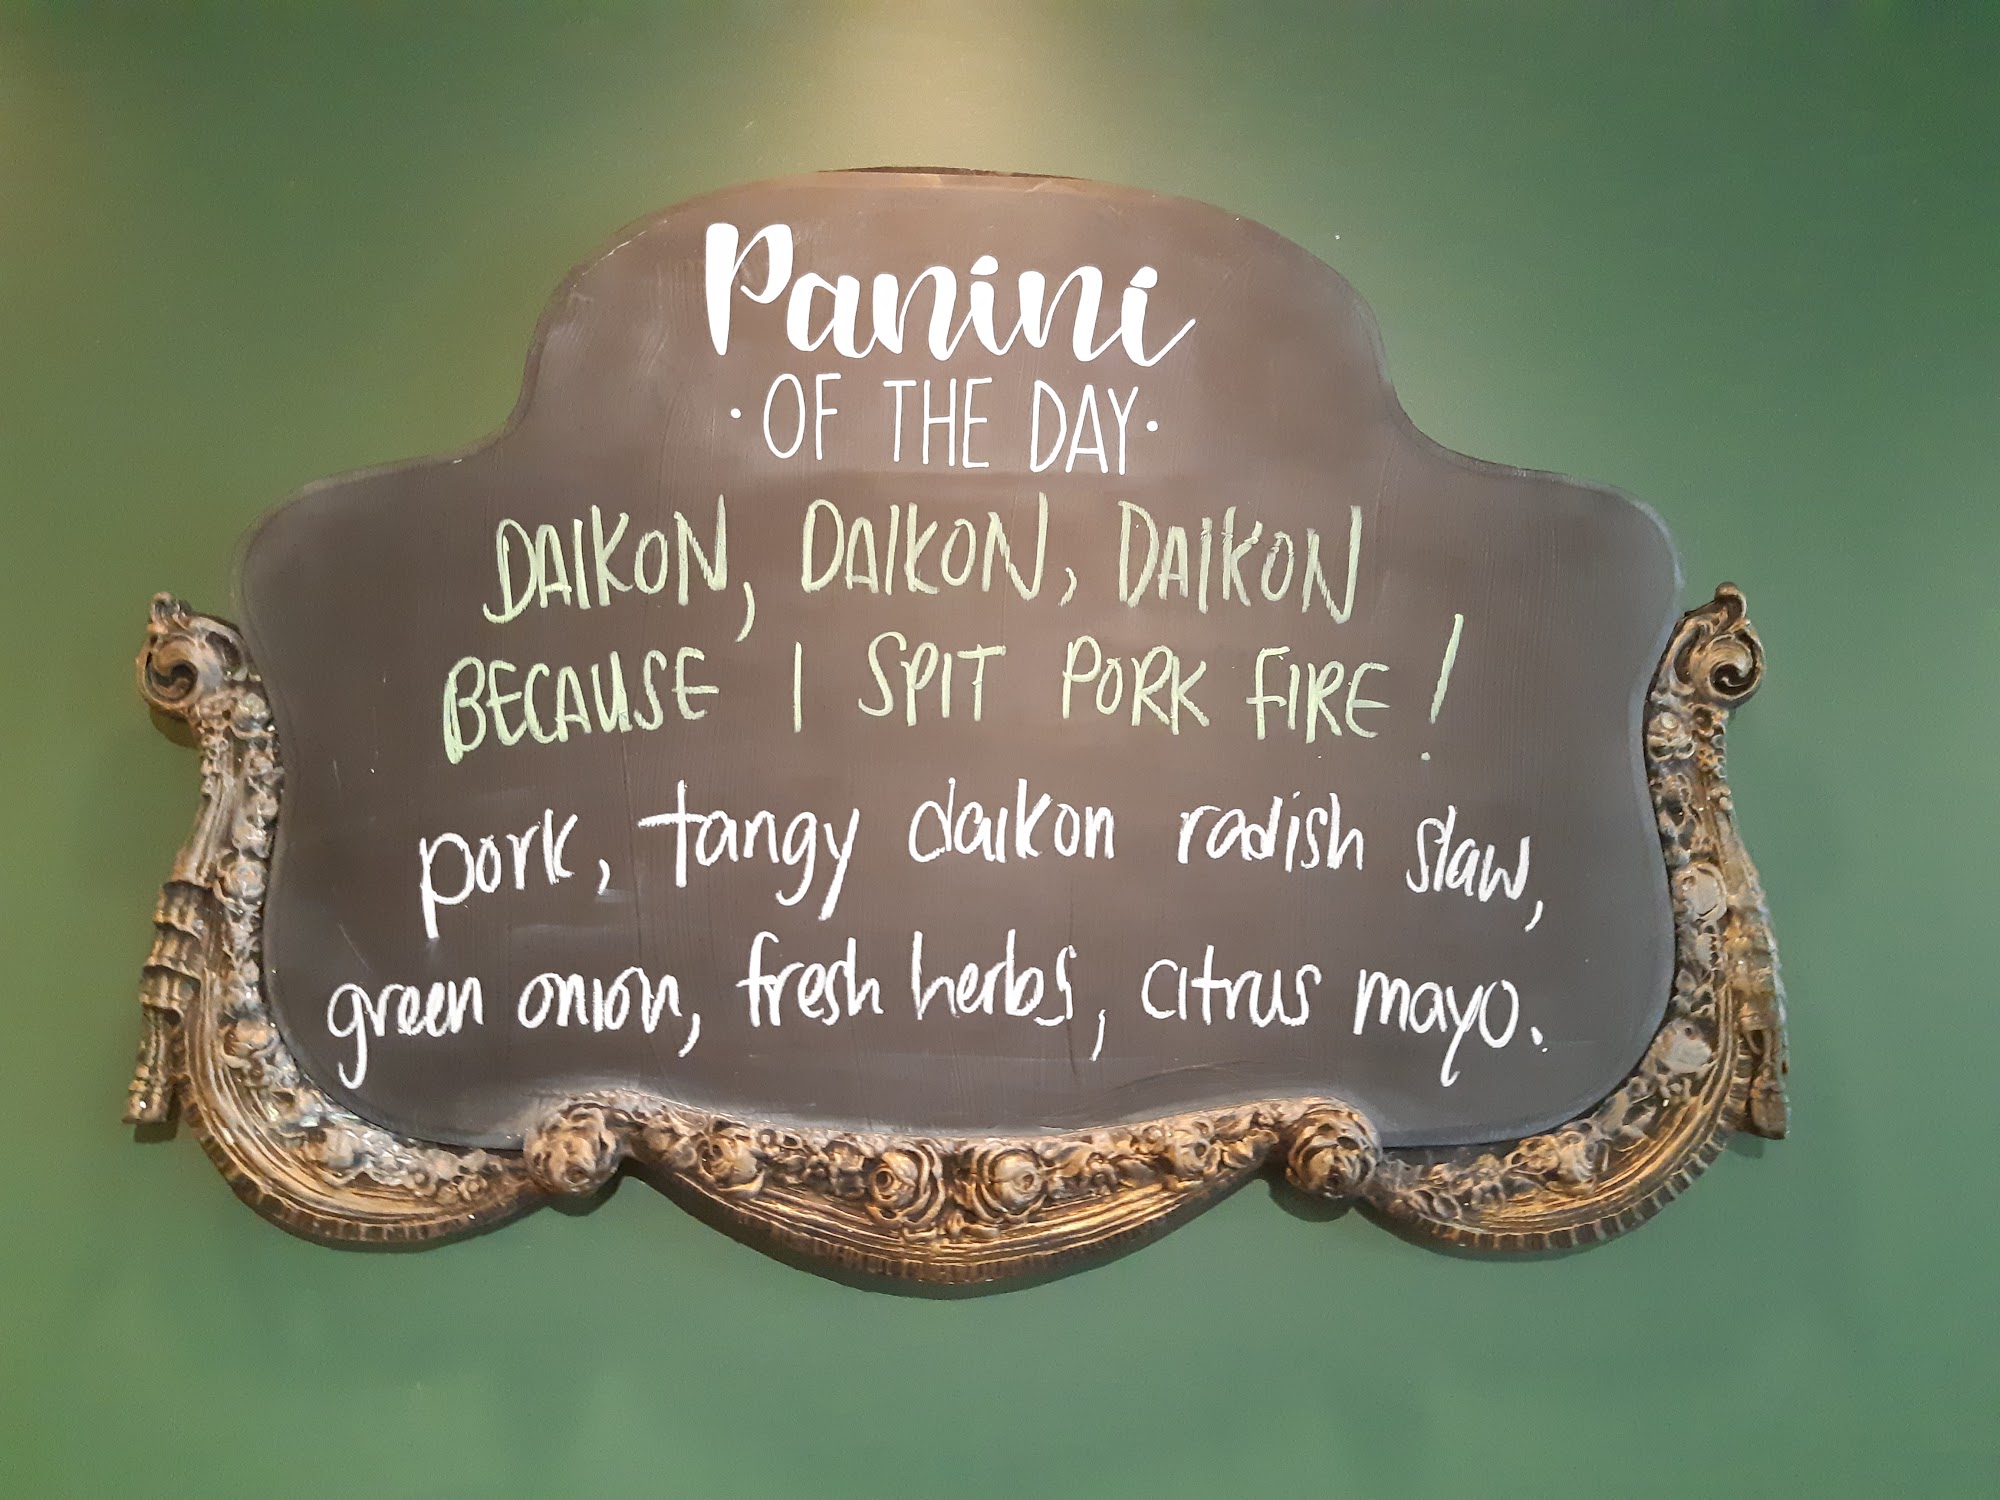 Panini
· OF THE DAY ·
DAIKON, DAIKON, DAIKON
BECAUSE I SPIT PORK FIRE!
pork, tangy daikon radish slaw,
green onion, fresh herbs, citrus mayo.